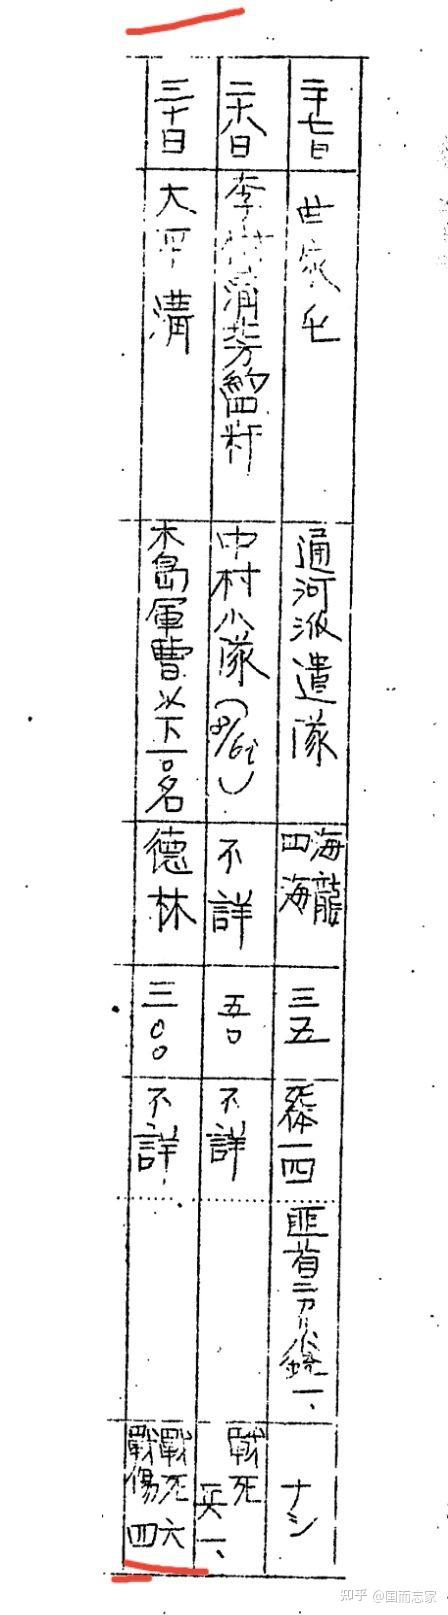 二十七日
世家屯
通河派遣隊
海龍
四海
三五
死体一四
匪首二
小銃一、
ナシ
二十八日
李
溝芳
中村小隊(8/6i)
不詳
五〇
不詳
戦死
兵一、
三十日
大平溝
木島軍曹以下一〇名
德林
三〇〇
不詳
戰死六
戰傷四
知乎 @国而志家